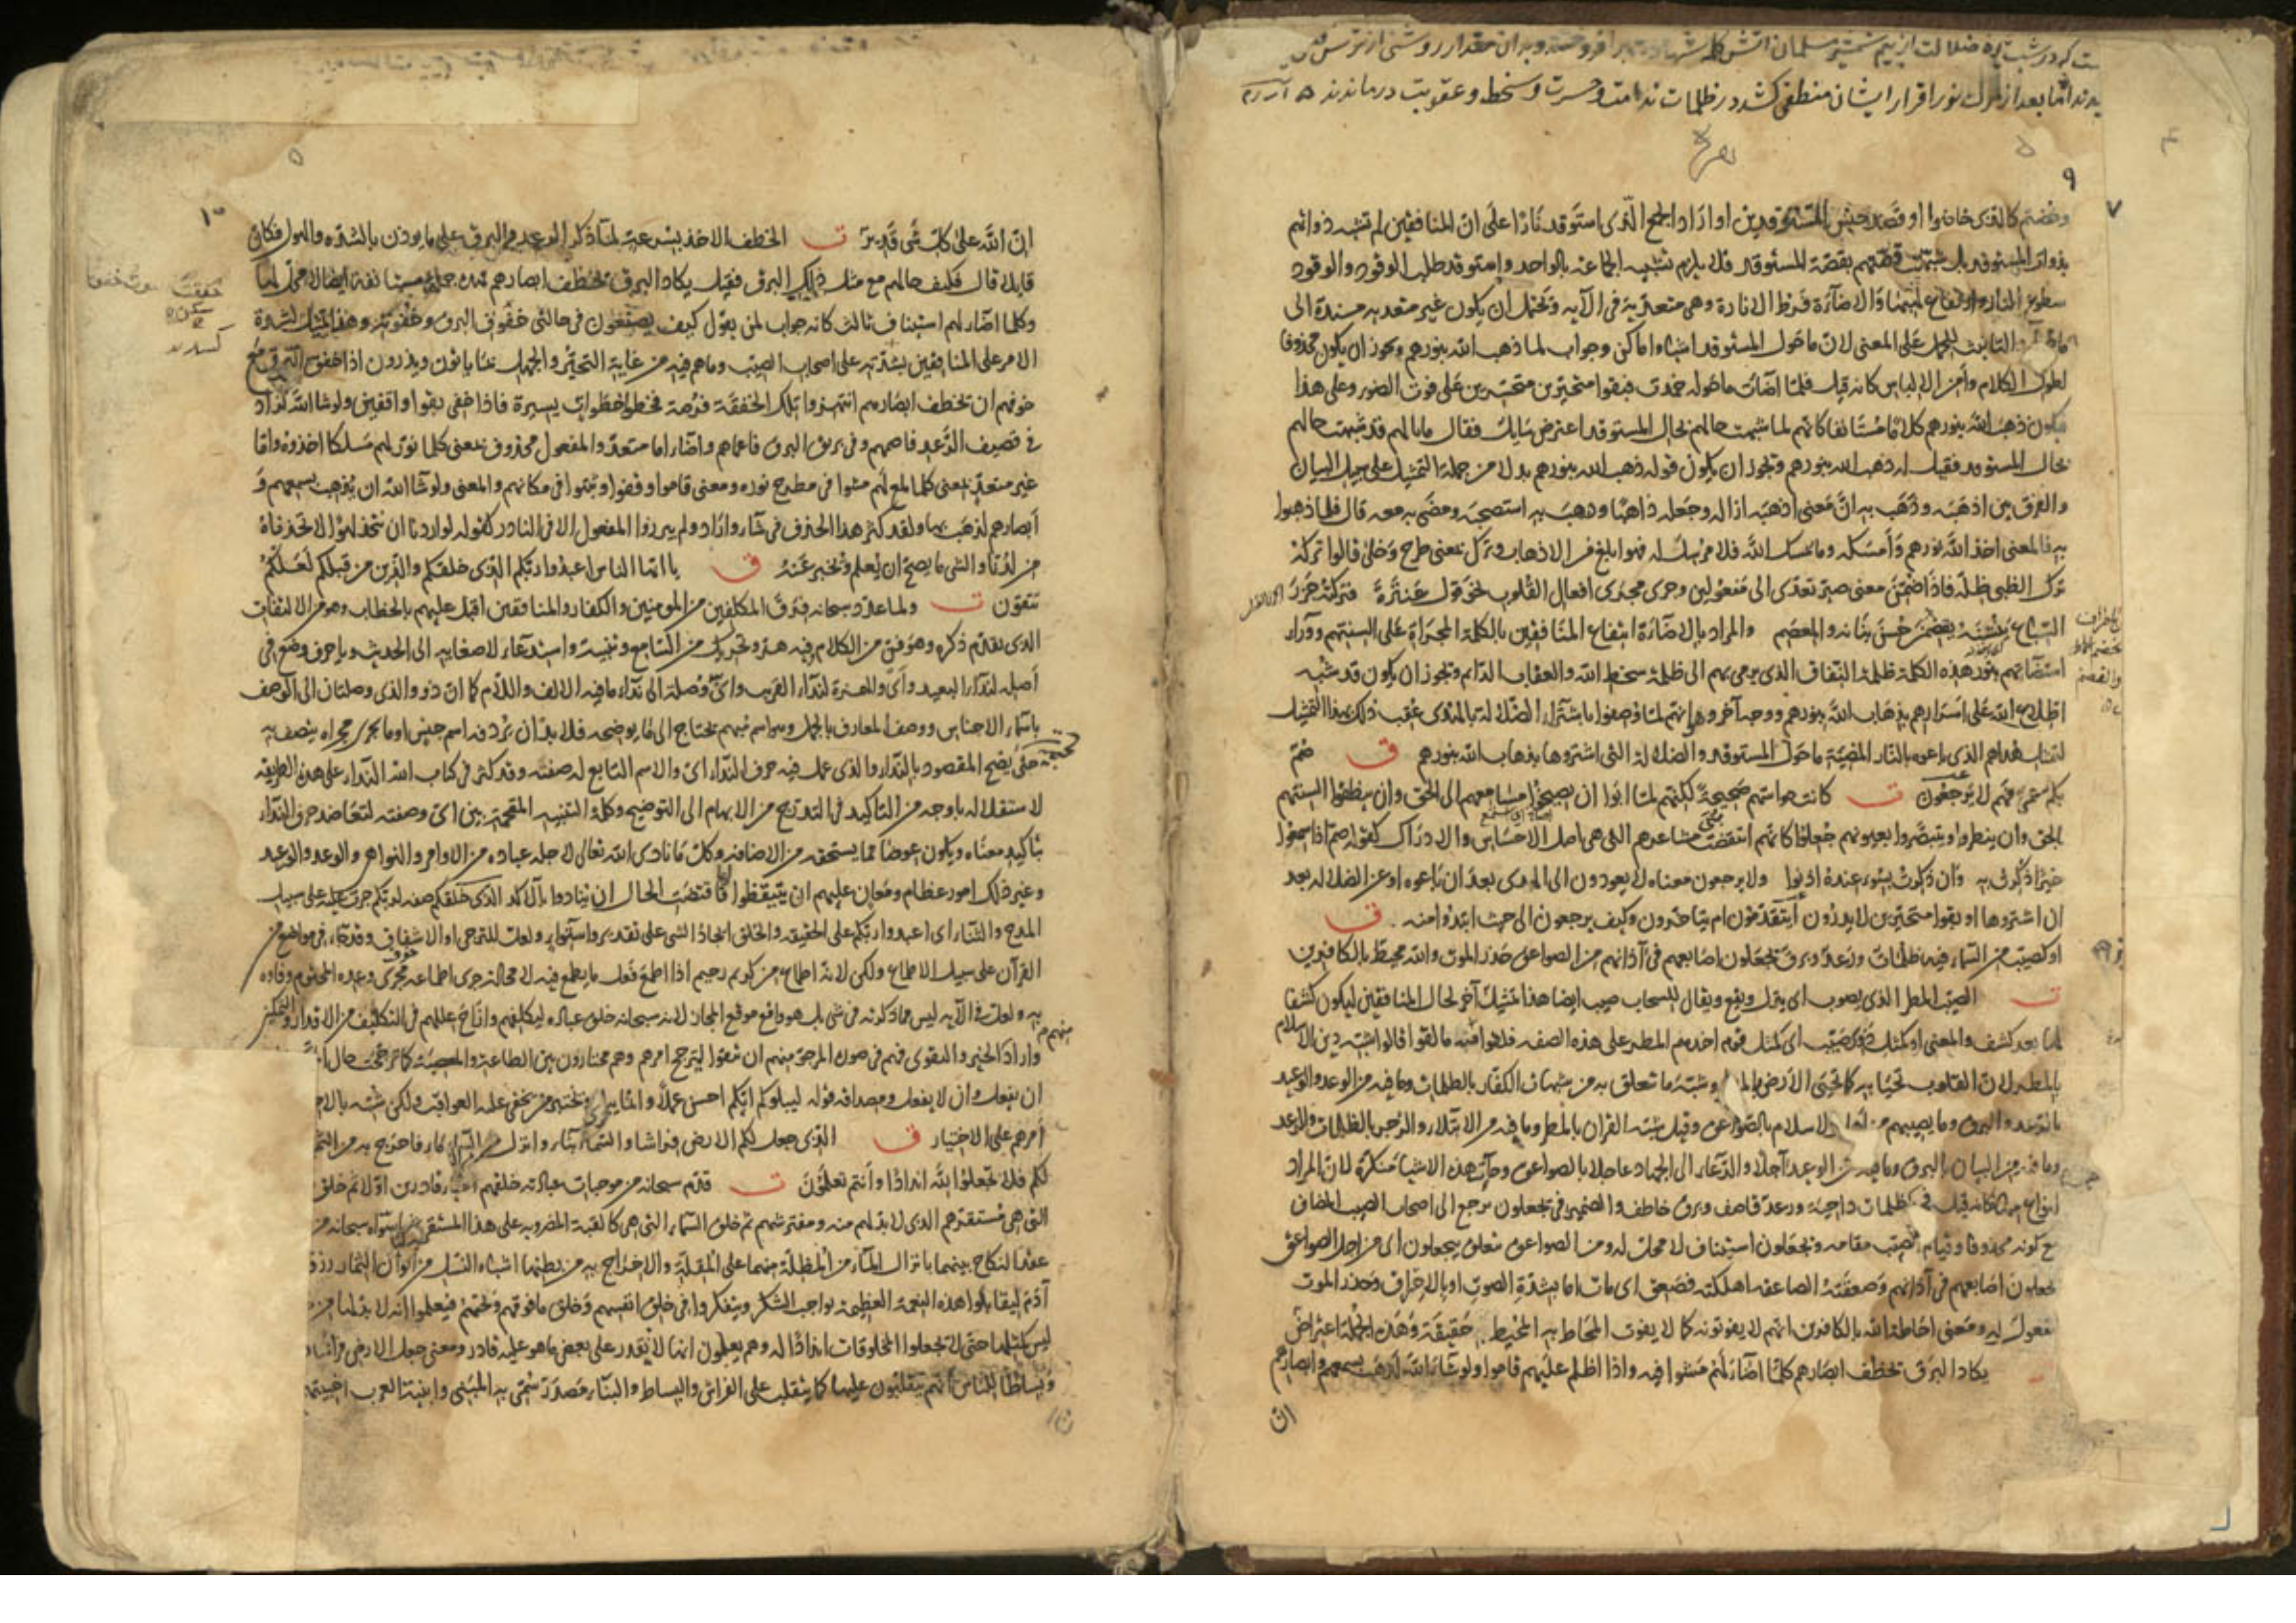 ست که در شب تیره ضلالت از بیم شمشیر مسلمانان آتش کلمه شهادت بر افروختند و به آن مقدار روشنی از ترس
اما بعد از مرگ نور اقرار ایشان منطفی کشد در ظلمات ندامت و حسرت و سخط و عقوبت درماندند
۹
وخضتم كالذي خاضوا او قصد جنس المستوقدين او اراد الجمع الذي استوقد نارا على ان المنافقين لم تشبه ذواتهم
بذوات المستوقد بل شبهت قصتهم بقصة المستوقد فلا يلزم تشبيه الجماعة بالواحد واستوقد طلب الوقود والوقود
سطوع النار وارتفاع لهبها والاضآءة فرط الانارة وهى متعدية فى الآية وتحتمل ان يكون غير متعدية مسندة الى
ما حوله والتانيث للحمل على المعنى لان ما حول المستوقد اشياء واماكن وجواب لما ذهب الله بنورهم ويجوز ان يكون محذوفا
لطول الكلام وأمن الالباس كانه قيل فلما اضآءت ما حوله خمدت فبقوا متحيرين متحسرين على فوت الضوء وعلى هذا
فيكون ذهب الله بنورهم كلاما مستانفا كانهم لما شبهت حالهم بحال المستوقد اعترض سايل فقال ما بالهم قد شبهت حالهم
بحال المستوقد فقيل له ذهب الله بنورهم ويجوز ان يكون قوله ذهب الله بنورهم بدلا من جملة التمثيل على سبيل البيان
والفرق بين اذهبه وذهب به ان معنى اذهبه ازاله وجعله ذاهبا وذهب به استصحبه ومضى به معه قال فلما ذهبوا
به فالمعنى اخذ الله نورهم وأمسكه وما يمسك الله فلا مرسل له فهو ابلغ من الاذهاب وترك بمعنى طرح وخلى قالوا تركه
ترك الظبى ظله فاذا ضمن معنى صير تعدى الى مفعولين وجرى مجرى افعال القلوب نحو قول عنترة فتركته جزر
السباع ينشنه يقضمن حسن بنانه والمعصم والمراد بالاضآءة انتفاع المنافقين بالكلمة المجراة على السنتهم وورآء
استضآءتهم بنور هذه الكلمة ظلمة النفاق الذي يرمى بهم الى ظلمة سخط الله والعقاب الدائم ويجوز ان يكون قد شبه
اطلاع الله على اسرارهم بذهاب الله بنورهم ووجه آخر وهو انهم لما وصفوا باشترآء الضلالة بالهدى عقب ذلك بهذا التمثيل
لتمثيل هداهم الذي باعوه بالنار المضيئة ما حول المستوقد والضلالة التي اشتروها بذهاب الله بنورهم ق صم
بكم عمى فهم لا يرجعون ت كانت حواسهم صحيحة لكنهم لما ابوا ان يصيخوا مسامعهم الى الحق وان ينطقوا السنتهم
بالحق وان ينظروا ويتبصروا بعيونهم جعلوا كانهم انتقضت مشاعرهم التي هى اصل الاحساس والادراك كقوله صم اذا سمعوا
خيرا ذكرت به وان ذكرت بسوء عنده اذنوا ولا يرجعون معناه لا يعودون الى الهدى بعد ان باعوه او عن الضلالة بعد
ان اشتروها او بقوا متحيرين لا يدرون أيتقدمون ام يتاخرون وكيف يرجعون الى حيث ابتدوا منه ق
او كصيب من السماء فيه ظلمات ورعد وبرق يجعلون اصابعهم في آذانهم من الصواعق حذر الموت والله محيط بالكافرين
ت الصيب المطر الذي يصوب اى ينزل ويقع ويقال للسحاب صيب ايضا هذا تمثيل آخر لحال المنافقين ليكون كشفا
لها بعد كشف والمعنى او كمثل ذوى صيب اى كمثل قوم اخذهم المطر على هذه الصفة فلقوا منه ما لقوا قالوا شبه دين الاسلام
بالمطر لان القلوب تحيا به كما تحيى الارض بالمطر وشبه ما تعلق به من شبهات الكفار بالظلمات وما فيه من الوعد والوعيد
بالرعد والبرق وما يصيبهم من الاسلام بالصواعق وقيل شبه القرآن بالمطر وما فيه من الابتلاء والزجر بالظلمات والرعد
وما فيه من البيان بالبرق وما فيه من الوعيد آجلا والدعاء الى الجهاد عاجلا بالصواعق وجآءت هذه الاشياء منكرة لان المراد
انواع منها كانه قيل فيه ظلمات داجية ورعد قاصف وبرق خاطف والضمير فى يجعلون يرجع الى اصحاب الصيب المضاف
مع كونه محذوفا وقيام الصيب مقامه ويجعلون استيناف لا محل له ومن الصواعق متعلق بيجعلون اى من اجل الصواعق
يجعلون اصابعهم فى آذانهم وصعقته الصاعقة اهلكته فصعق اى مات اما بشدة الصوت او بالاحراق وحذر الموت
مفعول له ومعنى احاطة الله بالكافرين انهم لا يفوتونه كما لا يفوت المحاط به المحيط به حقيقة وهذه الجملة اعتراض
يكاد البرق يخطف ابصارهم كلما اضآء لهم مشوا فيه واذا اظلم عليهم قاموا ولو شآء الله لذهب بسمعهم وابصارهم
ان
۱۰
ان الله على كل شئ قدير ت الخطف الاخذ بسرعة لما ذكر الرعد والبرق على ما يوذن بالشدة والهول فكان
قايلا قال فكيف حالهم مع مثل ذلك البرق فقيل يكاد البرق يخطف ابصارهم فهذه جملة مستانفة ايضا لا محل لها
وكلما اضآء لهم استيناف ثالث كانه جواب لمن يقول كيف يصنعون فى حالتى خفوق البرق وخفوته وهذا تمثيل لشدة
الامر على المنافقين بشدته على اصحاب الصيب وما هم فيه من غاية التحير والجهل بما ياتون ويذرون اذا خفق البرق مع
خوفهم ان يخطف ابصارهم انتهزوا تلك الخفقة فرصة فخطوا خطوات يسيرة فاذا خفى بقوا واقفين ولو شاء الله لزاد
فى قصيف الرعد فاصمهم وفى بريق البرق فاعماهم واضآء اما متعد والمفعول محذوف بمعنى كلما نور لهم مسلكا اخذوه واما
غير متعد بمعنى كلما لمع لهم مشوا فى مطرح نوره ومعنى قاموا وقفوا وثبتوا فى مكانهم والمعنى ولو شآء الله ان يذهب بسمعهم و
أبصارهم لذهب بها ولقد كثر هذا الحذف فى شاء واراد ولم يبرزوا المفعول الا فى النادر كقوله لو اردنا ان نتخذ لهوا لاتخذناه
من لدنا والشى ما يصح ان يعلم ويخبر عنه ق يا ايها الناس اعبدوا ربكم الذي خلقكم والذين من قبلكم لعلكم
تتقون ت ولما عدد سبحانه فرق المكلفين من المومنين والكفار والمنافقين اقبل عليهم بالخطاب وهو من الالتفات
الذى تقدم ذكره وهو فن من الكلام فيه هز وتحريك من السامع وتنبيه واستدعاء لاصغايه الى الحديث ويا حرف وضع فى
أصله لندآء البعيد وأى والهمزة لندآء القريب واى وصلة الى ندآء ما فيه الالف واللام كما ان ذو والذى وصلتان الى الوصف
باسماء الاجناس ووصف المعارف بالجمل وهو اسم مبهم يحتاج الى ما يوضحه فلا بد ان يردفه اسم جنس او ما يجرى مجراه يتصف به
حتى يصح المقصود بالندآء والذى عمل فيه حرف الندآء اى والاسم التابع له صفته وقد كثر فى كتاب الله الندآء على هذه الطريقة
لاستقلاله باوجه من التاكيد فى التدرج من الابهام الى التوضيح وكلمة التنبيه المقحمة بين اى وصفته لتعاضد حرف الندآء
بتاكيد معناه ويكون عوضا مما يستحقه من الاضافة وكل ما نادى الله تعالى لاجله عباده من الاوامر والنواهى والوعد والوعيد
وغير ذلك امور عظام ومعان عليهم ان يتيقظوا لها فاقتضت الحال ان ينادوا بالآكد الذى خلقكم صفة لربكم جرت عليه على سبيل
المدح والثناء اى اعبدوا ربكم على الحقيقة والخلق ايجاد الشى على تقدير واستوآء ولعل للترجى او الاشفاق وقد جآء فى مواضع من
القرآن على سبيل الاطماع ولكن لانه اطماع من كريم رحيم اذا اطمع فعل ما يطمع فيه لا محالة جرى اطماعه مجرى وعده المحتوم وفاؤه
به ولعل فى الآية ليس مما ذكرته فى شى بل هو واقع موقع المجاز لانه سبحانه خلق عباده ليكلفهم وازاح عللهم فى التكليف من الاقدار والتمكين
واراد الخير والتقوى فهم فى صورة المرجو منهم ان يتقوا ليترجح امرهم وهم مختارون بين الطاعة والمعصية كما ترجحت حال
ان يفعل وان لا يفعل ومصداقه قوله ليبلوكم ايكم احسن عملا وانما يبلى ويختبر من يخفى عليه العواقب ولكن شبه بالا
أمرهم على الاختيار ق الذي جعل لكم الارض فراشا والسماء بناء وانزل من السماء ماء فاخرج به من الثم
لكم فلا تجعلوا لله اندادا وأنتم تعلمون ت قدم سبحانه من موجبات عبادته خلقهم احياء قادرين اولا ثم خلق
التي هى مستقرهم الذى لا بد لهم منه ومفترشهم ثم خلق السماء التى هى كالقبة المضروبة على هذا المستقر ثم ما سواه سبحانه من
عقد النكاح بينهما بانزال المآء من المظلة منهما على المقلة والاخراج به من بطنها اشباه النسل من الوان الثمار رزق
آدم ليقابلوا هذه النعمة العظيمة بواجب الشكر ويتفكروا فى خلق انفسهم وخلق ما فوقهم وتحتهم فيعلموا انه لا بد لها من
ليس كمثلها حتى لا يجعلوا المخلوقات اندادا له وهم يعلمون انها لا يقدر على بعض ما هو عليه قادر ومعنى جعل الارض فراشا
وبساطا للناس انهم يتقلبون عليها كما يتقلب على الفراش والبساط والبناء مصدر سمى به المبنى وابنية العرب اخبيتهم